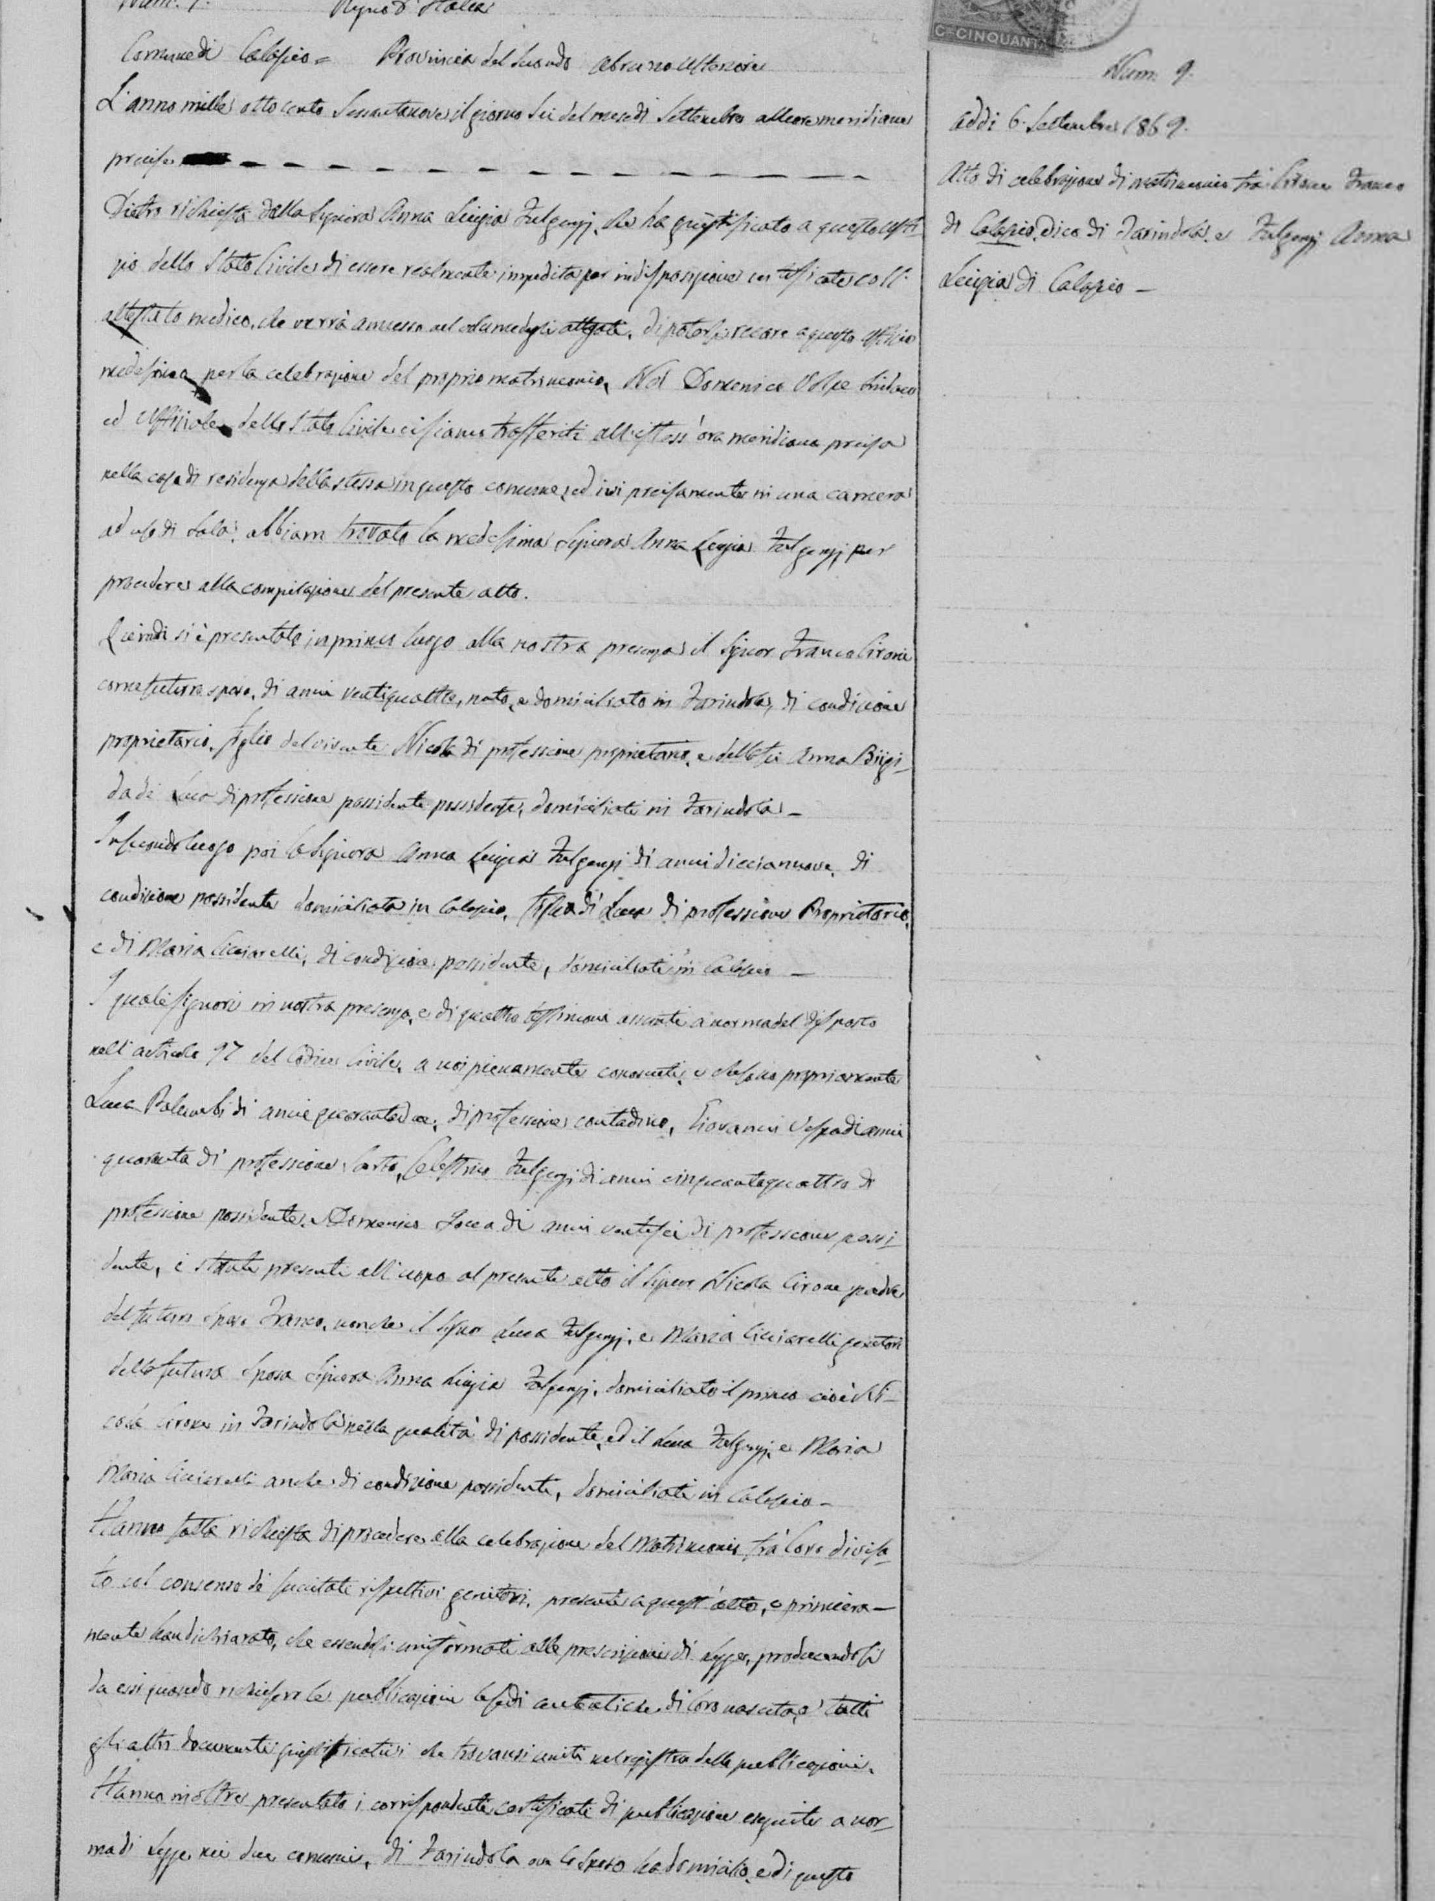 Num. 9. Regno d'Italia
Comune di Calascio = Provincia del Secondo Abruzzo Ulteriore
L'anno mille otto cento Sessantanove il giorno Sei del mese di Settembre alle ore meridiane
precise
Dietro richiesta della Signora Anna Luigia Fulgenzj, che ha giustificato a questo uffi-
zio dello Stato Civile di essere realmente impedita per indisposizione certificata coll'
attestato medico, che verrà annesso nel volume degli allegati, di potersi recare a questo officio
medesimo per la celebrazione del proprio matrimonio, Noi Domenico Volpe Sindaco
ed Uffiziale dello Stato Civile ci siamo trasferiti alla stess'ora meridiana precisa
nella casa di residenza della stessa in questo comune, ed ivi precisamente in una camera
ad uso di sala, abbiam trovato la medesima Signora Anna Luigia Fulgenzj per
procedere alla compilazione del presente atto.
Quindi si è presentato in primo luogo alla nostra presenza il Signor Franco Cirone
come futuro sposo, di anni ventiquattro, nato, e domiciliato in Farindola, di condizione
proprietario, figlio del vivente Nicola di professione proprietario, e della fu Anna Brigi-
da de Luca di professione possidente possidente, domiciliati in Farindola -
In secondo luogo poi la Signora Anna Luigia Fulgenzj di anni diecianuove, di
condizione possidente domiciliata in Calascio, figlia di Luca di professione Proprietario,
e di Maria Ciccarelli, di condizione possidente, domiciliati in Calascio -
I quali signori in nostra presenza, e di quattro testimoni assunti a norma del disposto
nell'articolo 97 del Codice Civile, a noi pienamente conosciuti, e che sono propriamente
Luca Palumbi di anni quarantadue, di professione contadino, Giovanni Vespa di anni
quaranta di professione Sarto, Celestino Fulgenzj di anni cinquantaquattro di
professione possidente, e Domenico di anni ventisei di professione possi-
dente, e stante presenti all'uopo al presente atto il Signor Nicola Cirone padre
del futuro Sposo Franco, nonche il Signor Luca Fulgenzj, e Maria Ciccarelli genitori
della futura Sposa Signora Anna Luigia Fulgenzj, domiciliato il primo cioè Ni-
cola Cirone in Farindola nella qualità di possidente, ed il Luca Fulgenzj, e Maria
Maria Ciccarelli anche di condizione possidente, domiciliati in Calascio -
Hanno fatta richiesta di procedere alla celebrazione del Matrimonio fra loro divisa-
to col consenso de succitati rispettivi genitori, presenti a quest'atto, e primiera-
mente han dichiarato, che essendosi uniformati alle prescrizioni di legge, producendosi
da essi quando richiesero le pubblicazioni le fedi autentiche di loro nascita, e tutti
gli altri documenti giustificativi che trovansi uniti nel registro delle pubblicazioni.
Hanno inoltre presentato i corrispondenti certificati di pubblicazione eseguite a nor-
ma di legge nei due comuni, di Farindola ove lo Sposo ha domicilio, e di questo
C=CINQUANT
Num. 9.
Addì 6. Settembre 1869.
Atto di celebrazione di matrimonio tra Cirone Franco
di Calascio, dico di Farindola, e Fulgenzj Anna
Luigia di Calascio -